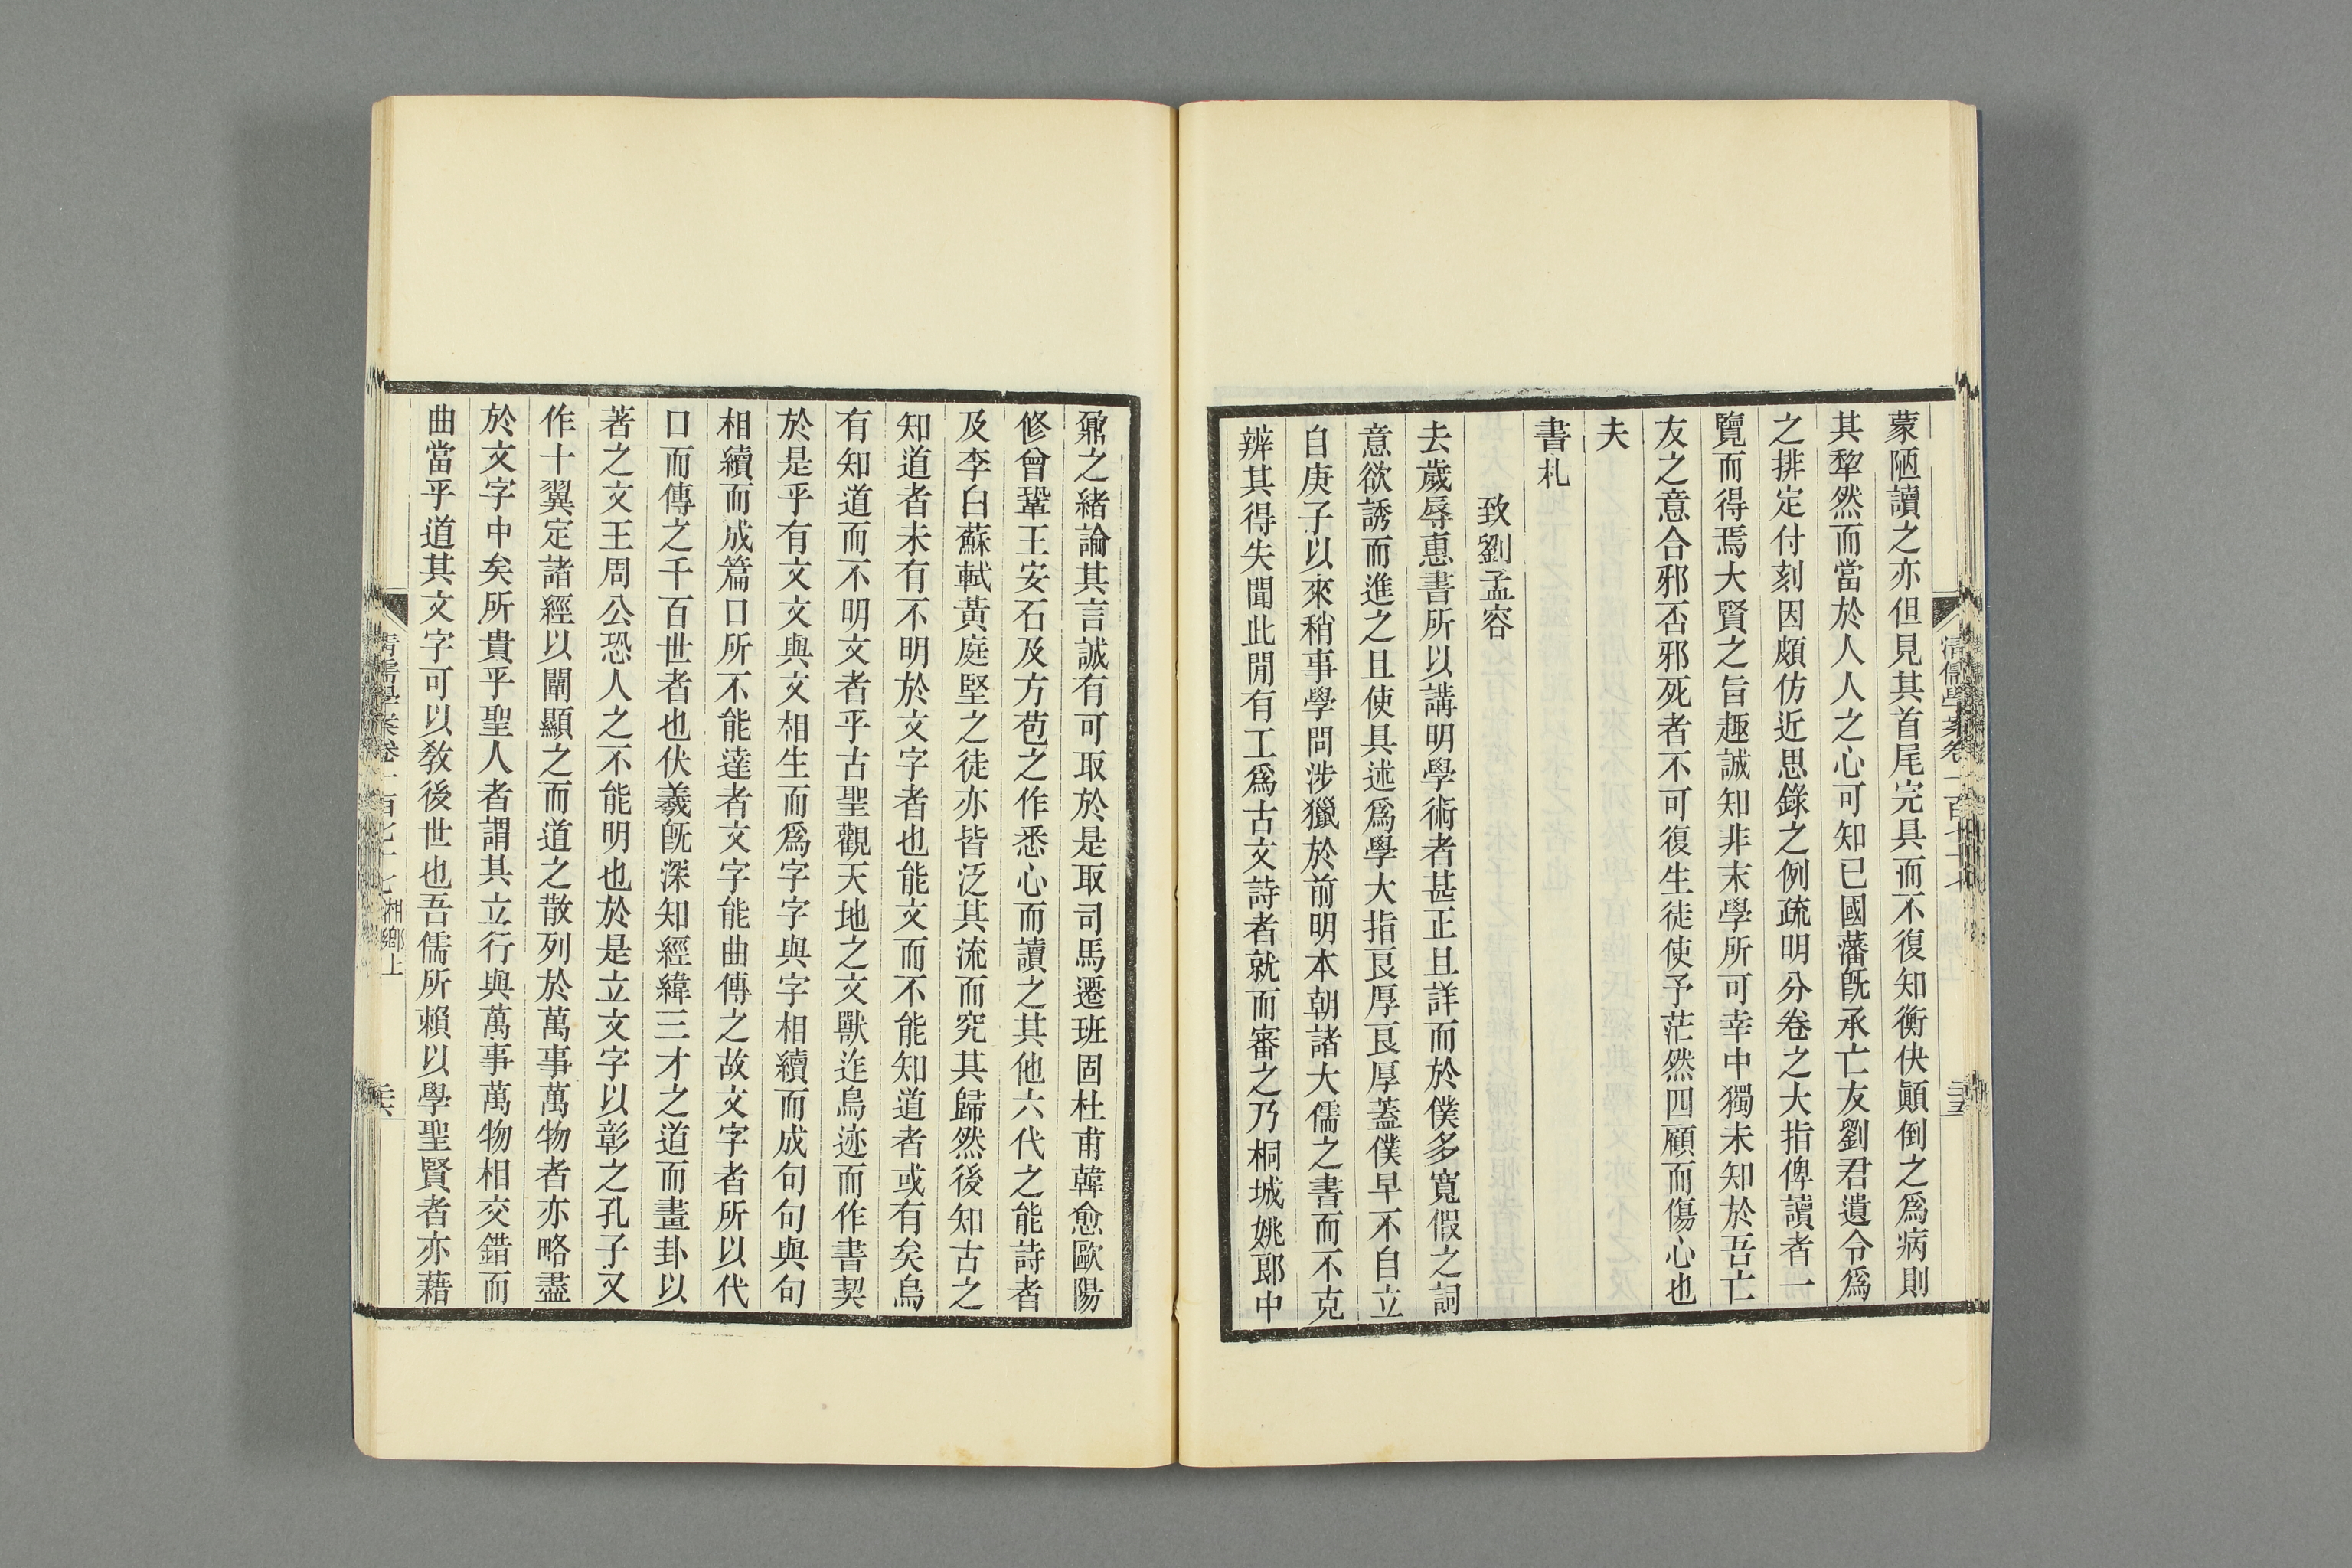 蒙陋讀之亦但見其首尾完具而不復知衡佚顚倒之爲病則
其犂然而當於人人之心可知已國藩旣承亡友劉君遺令爲
之排定付刻因頗仿近思錄之例疏明分卷之大指俾讀者一
覽而得焉大賢之旨趣誠知非末學所可幸中獨未知於吾亡
友之意合邪否邪死者不可復生徒使予茫然四顧而傷心也
夫
書札
致劉孟容
去歲辱惠書所以講明學術者甚正且詳而於僕多寬假之詞
意欲誘而進之且使具述爲學大指良厚良厚蓋僕早不自立
自庚子以來稍事學問涉獵於前明本朝諸大儒之書而不克
辨其得失聞此閒有工爲古文詩者就而審之乃桐城姚郎中
鼐之緒論其言誠有可取於是取司馬遷班固杜甫韓愈歐陽
修曾鞏王安石及方苞之作悉心而讀之其他六代之能詩者
及李白蘇軾黃庭堅之徒亦皆泛其流而究其歸然後知古之
知道者未有不明於文字者也能文而不能知道者或有矣烏
有知道而不明文者乎古聖觀天地之文獸迹鳥迹而作書契
於是乎有文文與文相生而爲字字與字相續而成句句與句
相續而成篇口所不能達者文字能曲傳之故文字者所以代
口而傳之千百世者也伏羲旣深知經緯三才之道而畫卦以
著之文王周公恐人之不能明也於是立文字以彰之孔子又
作十翼定諸經以闡顯之而道之散列於萬事萬物者亦略盡
於文字中矣所貴乎聖人者謂其立行與萬事萬物相交錯而
曲當乎道其文字可以敎後世也吾儒所賴以學聖賢者亦藉
清儒學案卷一百七十七 湘鄉上